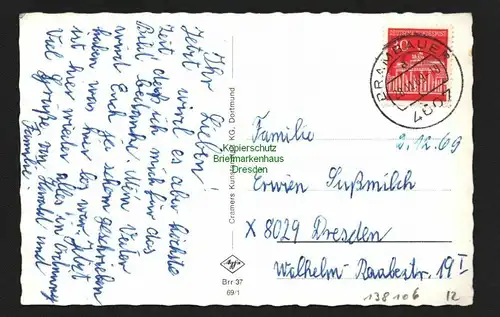 Ihr Lieben!
Jetzt wird es aber höchste
Zeit daß ich mich für das
Bild bedanke. Mein Vater
wird Euch ja schon geschrieben
haben was hier los war. Jetzt
ist hier wieder alles in Ordnung
Viel Grüße von Harald und
Familie.
Cramers Kunstanstalt KG, Dortmund
Brr 37
69/1
DEUTSCHE BUNDESPOST
BRAMBAUER
4601
Familie
2.12.69
Erwin Süßmilch
X 8029 Dresden
Wilhelm-Raabestr. 19 I
138106
12
Kopierschutz
Briefmarkenhaus
Dresden